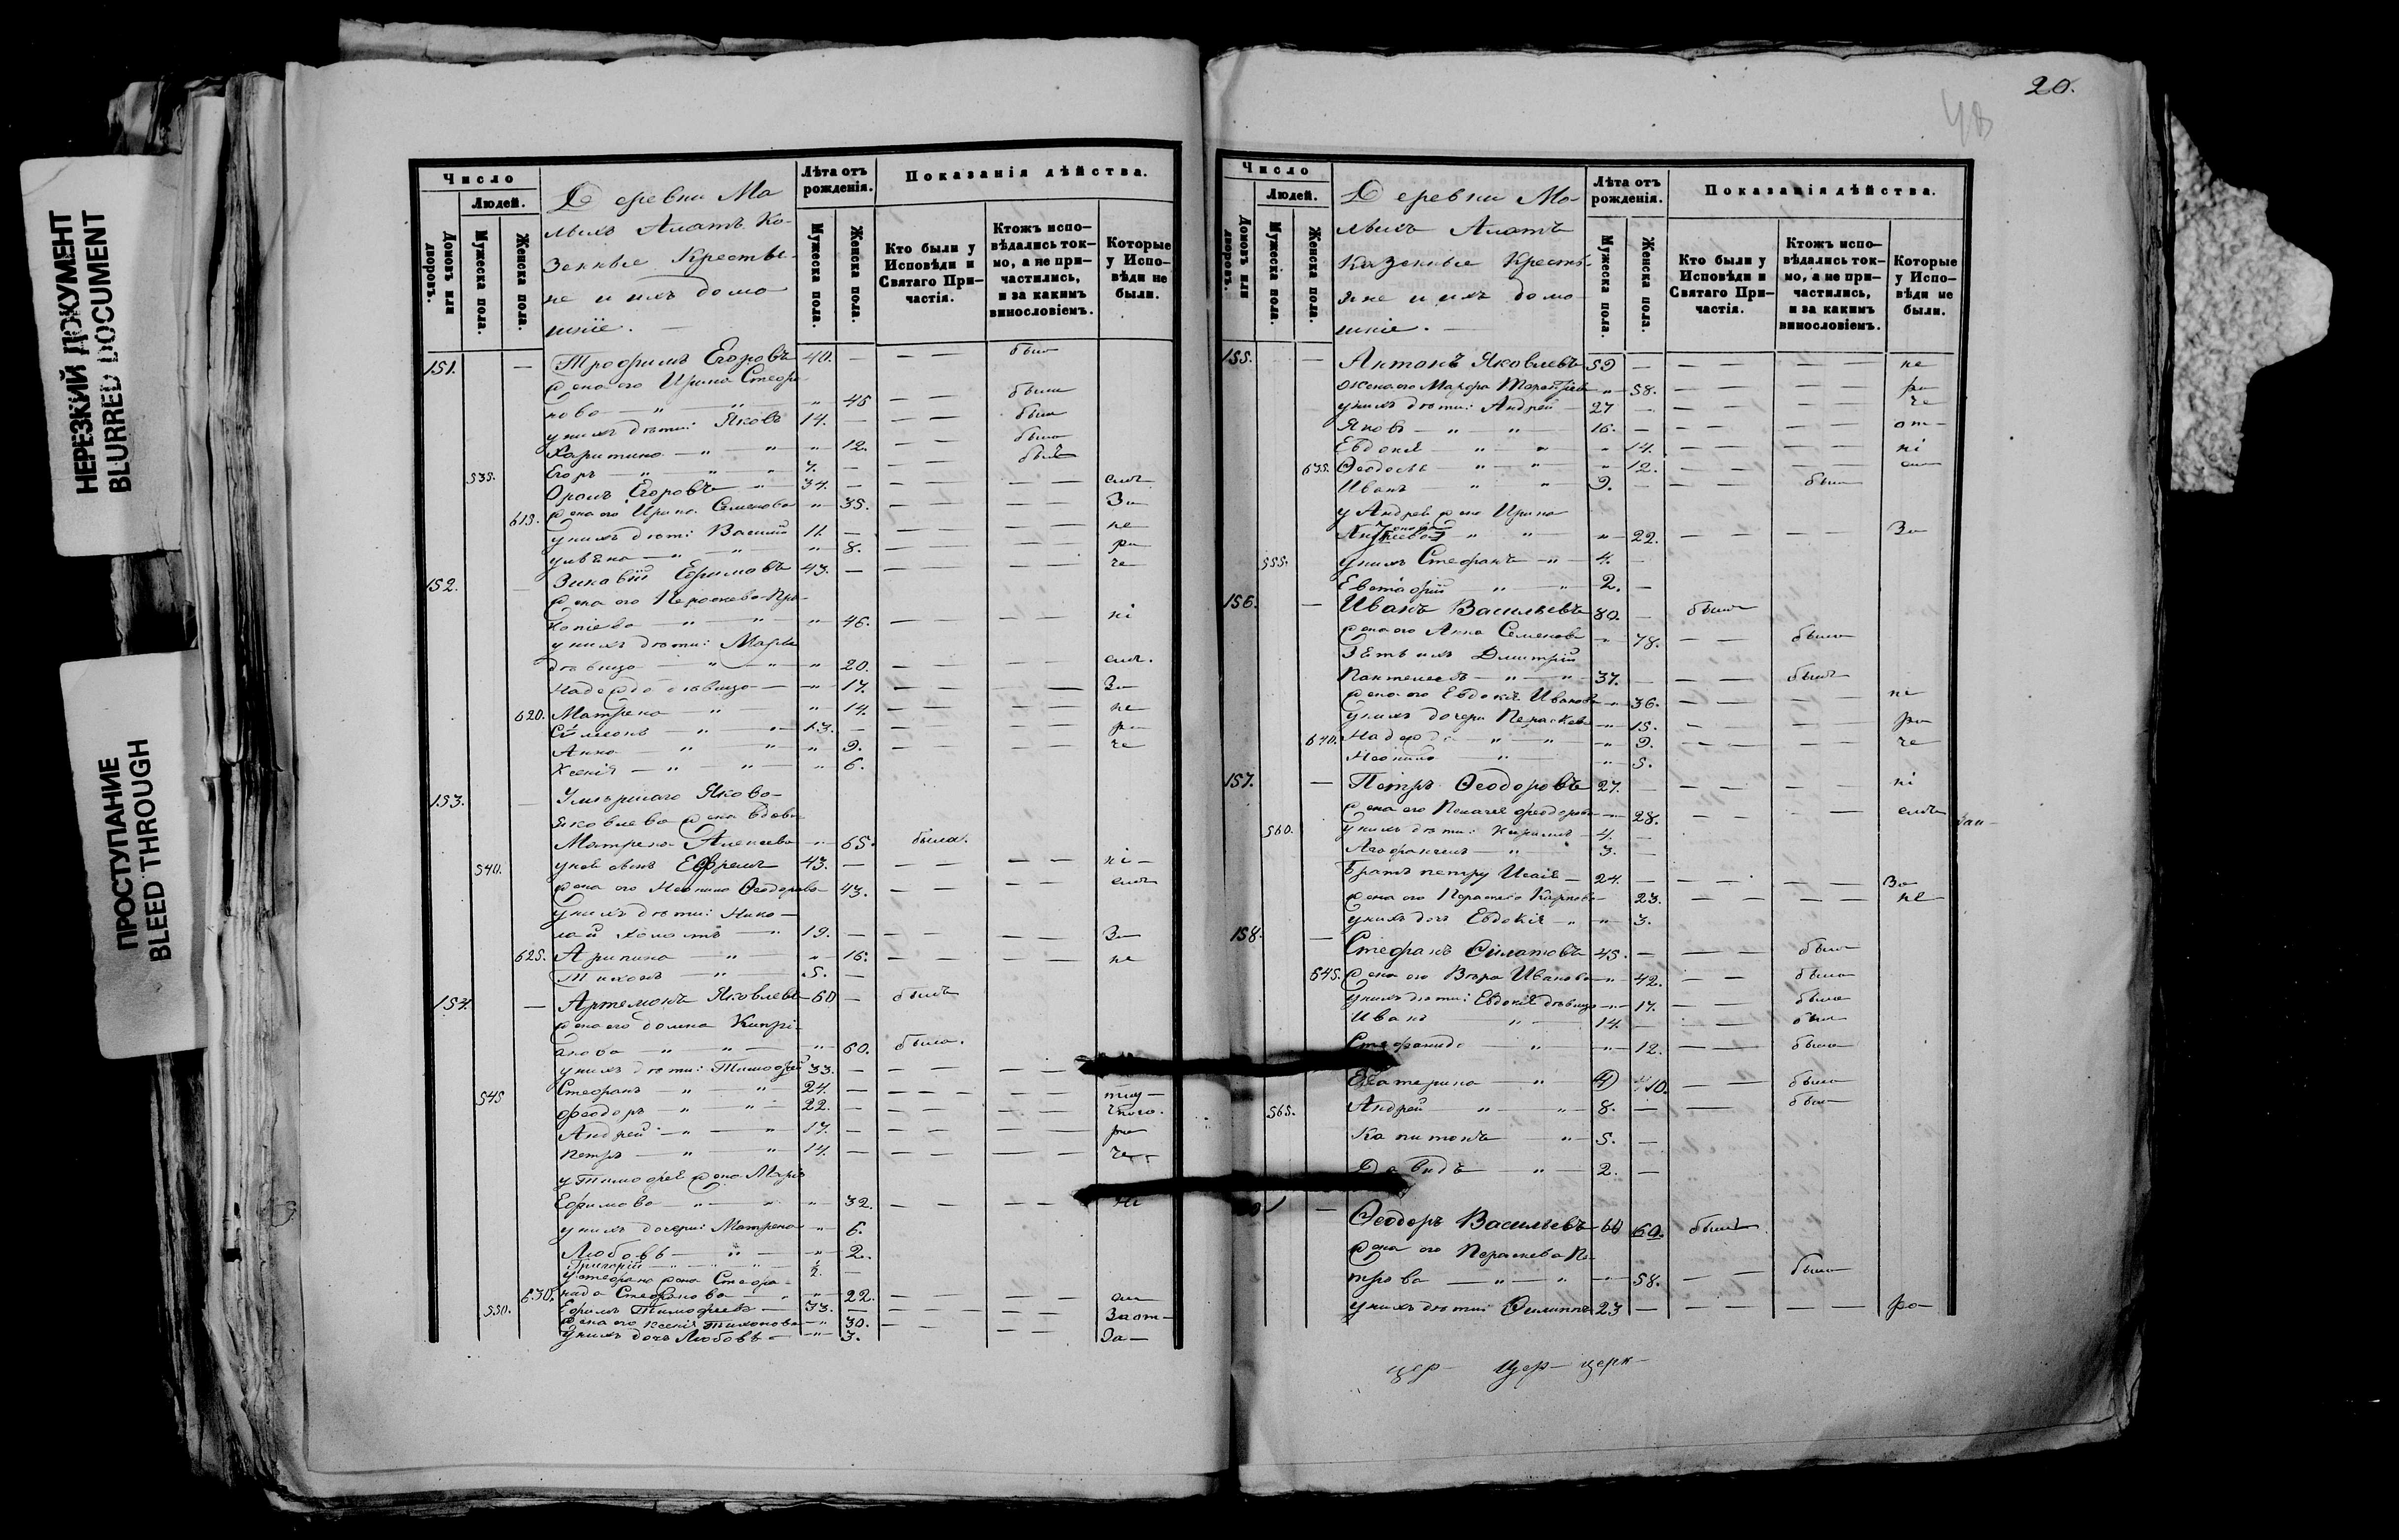 НЕРЕЗКИЙ ДОКУМЕНТ
BLURRED DOCUMENT
ПРОСТУПАНИЕ
BLEED THROUGH
Число
Людей.
Домовъ или дворовъ.
Мужеска пола.
Женска пола.
Деревни Ма
лыхъ Алатъ Ка-
зенные Крестья-
не и ихъ дома
шніе. —
Лѣта отъ рожденія.
Мужеска пола.
Женска пола.
Показанія дѣйства.
Кто были у Исповѣди и Святаго При-частія.
Ктожъ испо-вѣдались ток-мо, а не при-частились, и за какимъ винословіемъ.
Которые у Испо-вѣди не были.
151. — Трофимъ Егоровъ 40. — — — былъ
жена его Ирина Стефа
нова — " — " — " 45 — — была
у нихъ дѣти: Яковъ 14. — — — былъ
Харитина — " — " " 12. — — была
535. Егоръ — " " " 7. — — — былъ
Егоровъ — " 34. — — — — —
615. жена его Ирина Семенова " 35. — — — — За
у нихъ дѣти: Василій 11. — — — — — не
Ульяна — " — " " 8. — — — — ра
152. — Зиновій Ефимовъ 43. — — — — — че
жена его Параскева Про-
копіева — " — " — " 46. — — — — ні
у нихъ дѣти: Марія
дѣвица — " — " " 20. — — — — емъ.
Надежда дѣвица — " 17. — — — — За
620. Матрена — " — " 14. — — — — не
Симеонъ — " — " 13. — — — — — ра
Анна — " — " " 9. — — — — че
Ксенія — " — " — " 6.
153. — Умершаго Якова
Яковлева жена вдова
Матрена Алексеева — " 65. была.
540. у ней сынъ Ефремъ 43. — — — — — ні —
жена его Неонила Ѳеодорова 43. — — — — емъ
у нихъ дѣти: Нико —
лай холостъ — " 19. — — — — — За
625. Агрипина — " — " 16. — — — — не
Тихонъ — " — 5. —
154. — Артемонъ Яковлевъ 60 — былъ
жена его Домна Кипрі-
анова — " — " — " 60. была.
у нихъ дѣти: Тимофей 33. — — — — —
545 Стефанъ — " " 24. — — — — —
Ѳеодоръ — " " 22. — — — — —
Андрей — " — " 17. — — — — — ра
Петръ — " — " 14. — — — — — че
у Тимофея жена Марія
Ефимова — " — " " 32. — — — — ні
у нихъ дочери: Матрена " 6.
Любовь — " — " 2.
Григорій — " — " ½ —
у Стефана жена Стефа-
630. нида Стефанова — " " 22. — — — — ем
550. Ефимъ Тимофеевъ — 33. — — — — —
жена его Ксенія Тихонова — " 30. — — — —
у нихъ дочь Любовь — " 3. За —
20.
48
Число
Людей.
Домовъ или дворовъ.
Мужеска пола.
Женска пола.
Деревни Ма-
лыхъ Алатъ
Казенные Кресть-
яне и ихъ дома
шніе. —
Лѣта отъ рожденія.
Мужеска пола.
Женска пола.
Показанія дѣйства.
Кто были у Исповѣди и Святаго При-частія.
Ктожъ испо-вѣдались ток-мо, а не при-частились, и за какимъ винословіемъ.
Которые у Испо-вѣди не были.
155. — Антонъ Яковлевъ 59 — — — — — не
жена его Мавра Терентіева " 58. — — — — ра
у нихъ дѣти: Андрей — 27 — — — — — че
Яковъ — " — " — 16. — — — — — от —
Евдокія — " — " " 14. — — — — ні
635. Ѳеодосья " — " " 12. — — — — ем
Иванъ " — " 9. — — — былъ
у Андрея жена Ирина
Андреева " " " 22. — — — — За
555. у нихъ Стефанъ — " 4. —
Евстафій " — " 2. —
156. — Иванъ Васильевъ 80. — былъ
жена его Анна Семенова " 78. — — была
Зять ихъ Дмитрій
Пантелеевъ — " — " 37. — — — былъ
жена его Евдокія Иванова " 36. — — — — не
у нихъ дочери Параскева " 15. — — — — ра
640. Надежда — " — " " 9. — — — — че
Неонила " " 5.
157. — Петръ Ѳеодоровъ 27. — — — — — ні
жена его Пелагея Ѳеодорова " 28. — — — — емъ
560. у нихъ дѣти: Кириллъ — 4. —
— " 3. —
Братъ Петру Исаія — 24. — — — — — За
жена его Параскева Карпова 23. — — — — не
у нихъ дочь Евдокія — " " 3.
158. — Стефанъ Филатовъ 45. — — — былъ
645. жена его Вѣра Иванова " 42. — — была
у нихъ дѣти: Евдокія дѣвица " 17. — — была
Иванъ " — 14. — — — былъ
Стефанида — " — " 12. — — была
Екатерина — " 10. — — была
565. Андрей — " — " 8. — — — былъ
Капитонъ " 5. —
Давидъ — " 2. —
— Ѳеодоръ Васильевъ 60 60. былъ
жена его Параскева Пе-
трова — " — " " 58. — — была
у нихъ дѣти: Филиппъ 23 — — — — — ра —
цер — цер — церк —